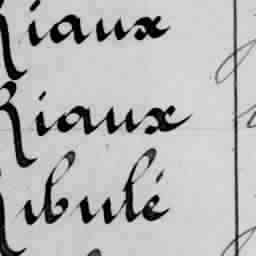 Riaux
Riaux
Ribulé